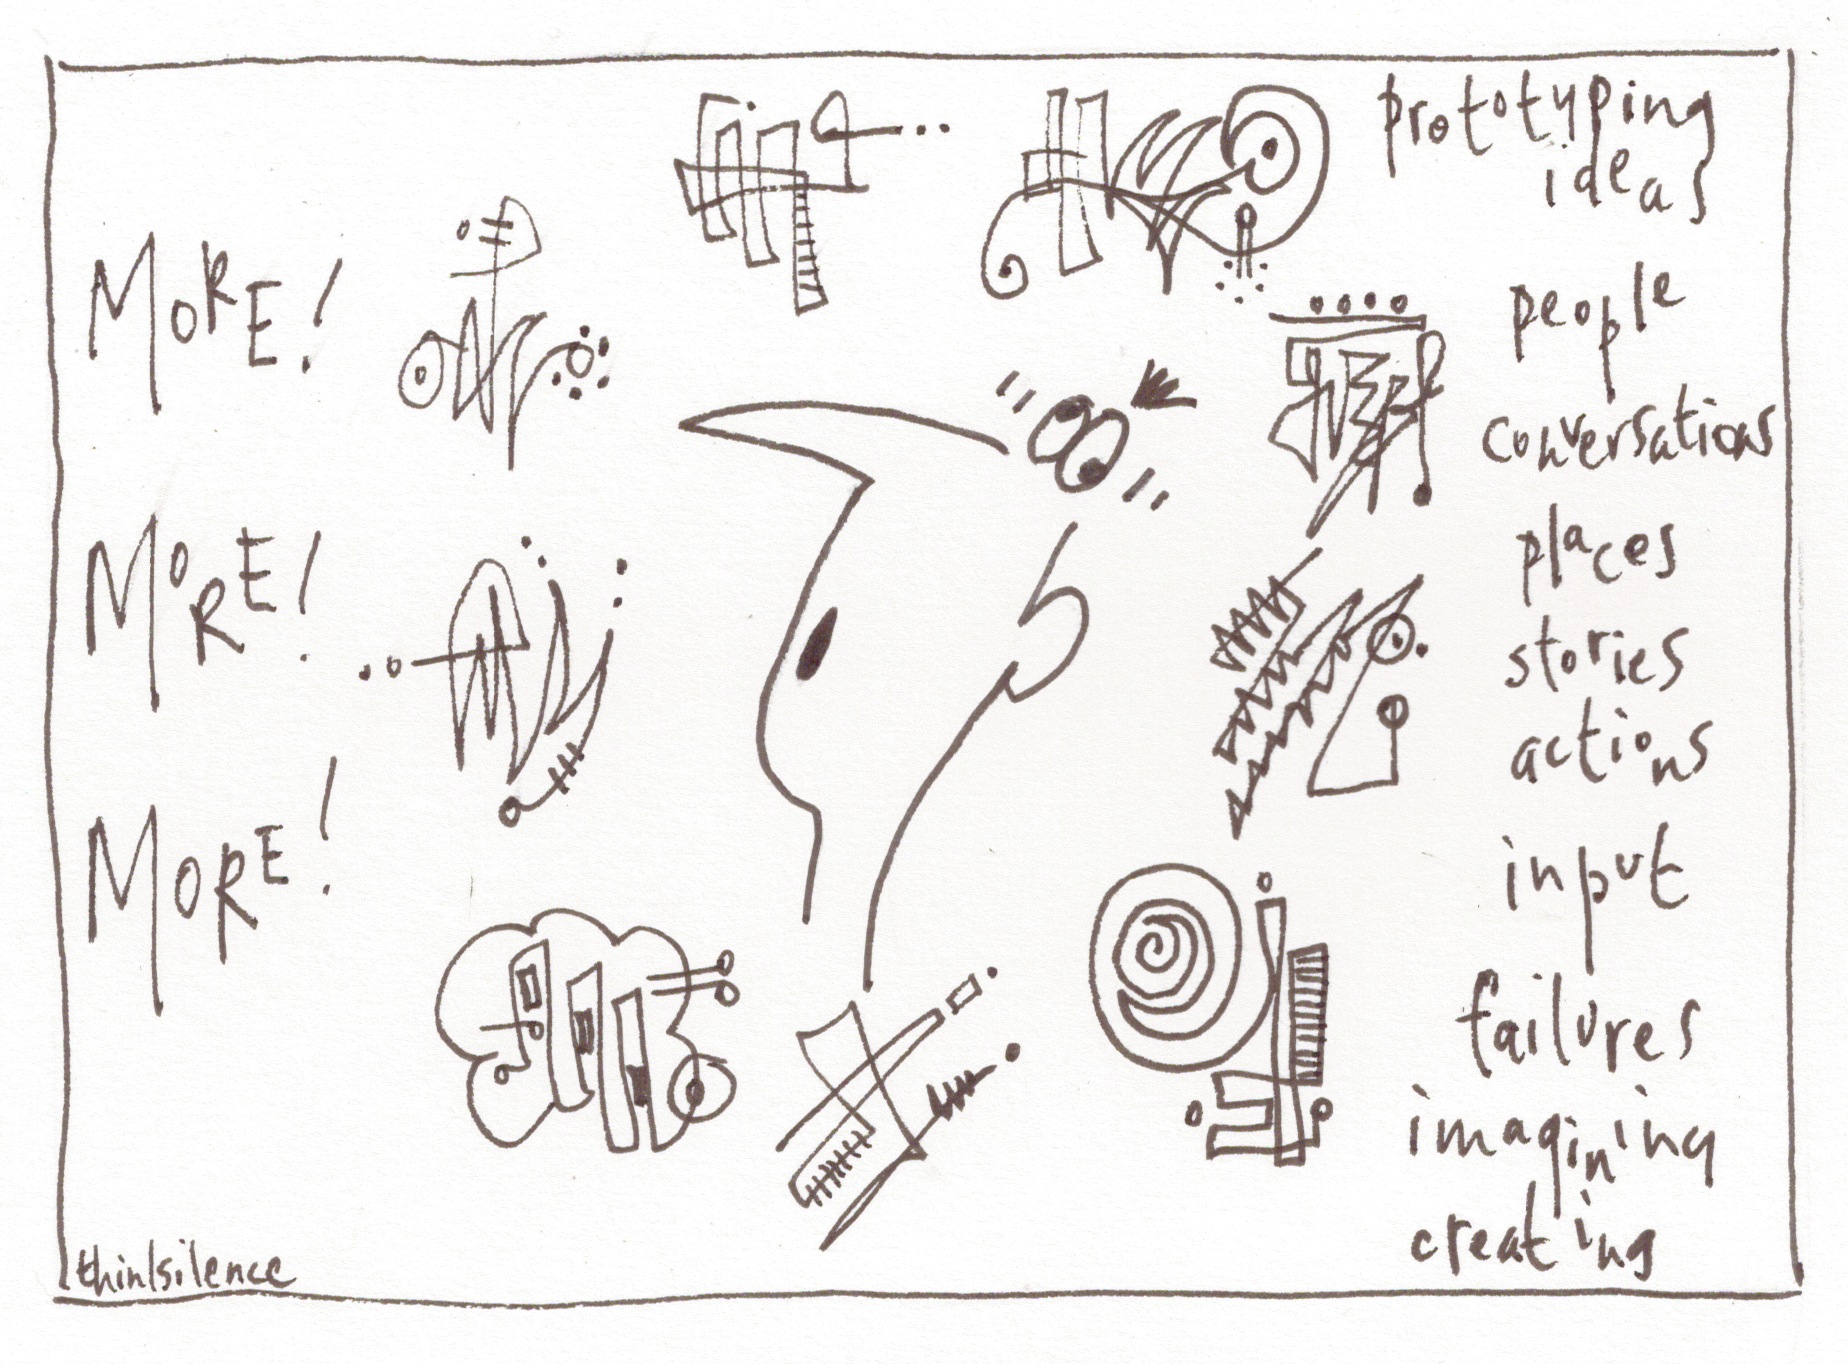 MORE!
MORE!
MORE!
prototyping
ideas
people
conversations
places
stories
actions
input
failures
imagining
creating
thin|silence